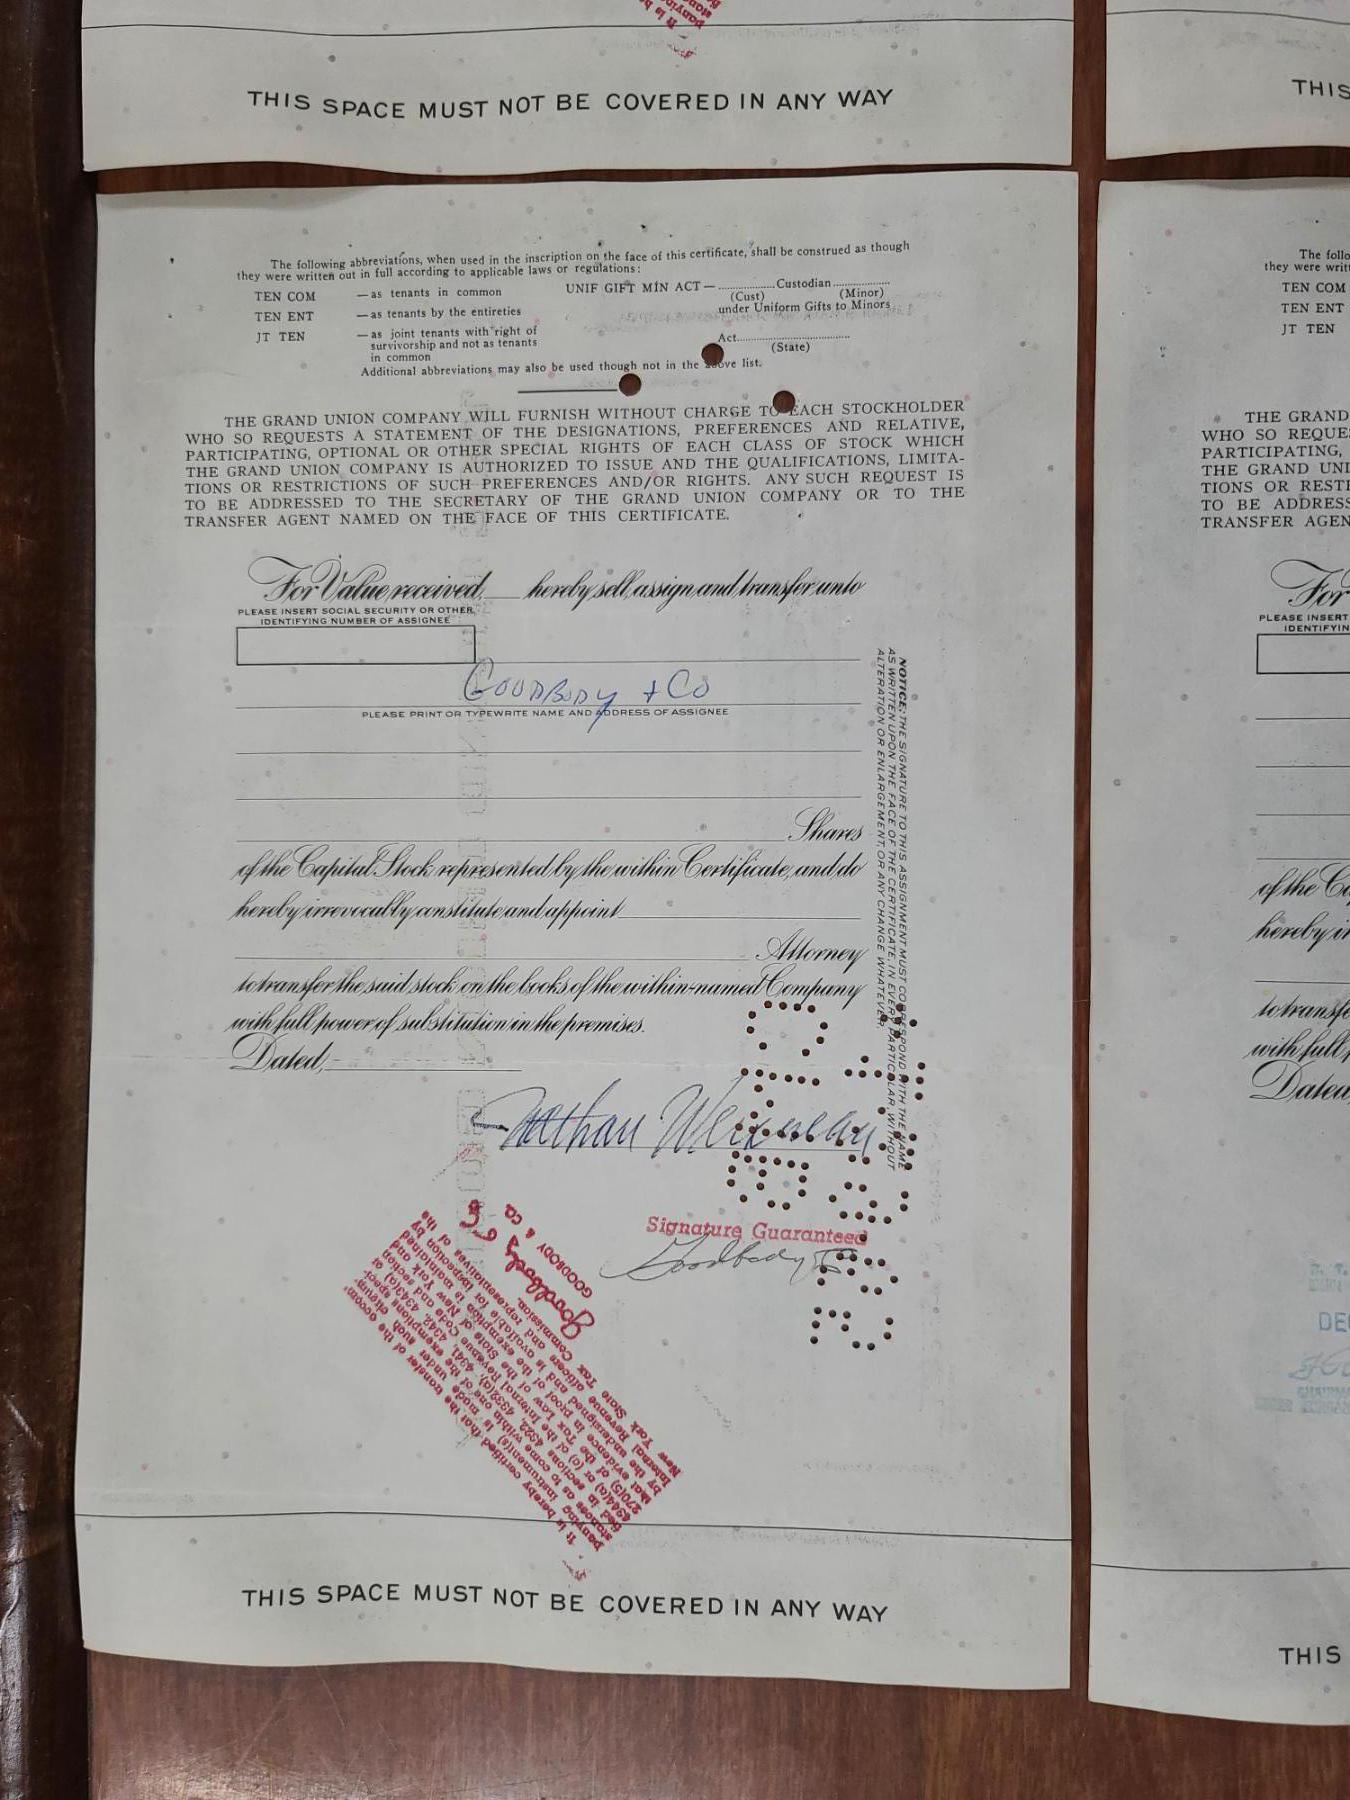 THIS SPACE MUST NOT BE COVERED IN ANY WAY
THIS
The following abbreviations, when used in the inscription on the face of this certificate, shall be construed as though
they were written out in full according to applicable laws or regulations:
TEN COM — as tenants in common
TEN ENT — as tenants by the entireties
JT TEN — as joint tenants with right of
survivorship and not as tenants
in common
UNIF GIFT MIN ACT — .................. Custodian ..................
(Cust) (Minor)
under Uniform Gifts to Minors
Act..................
(State)
Additional abbreviations may also be used though not in the above list.
THE GRAND UNION COMPANY WILL FURNISH WITHOUT CHARGE TO EACH STOCKHOLDER
WHO SO REQUESTS A STATEMENT OF THE DESIGNATIONS, PREFERENCES AND RELATIVE,
PARTICIPATING, OPTIONAL OR OTHER SPECIAL RIGHTS OF EACH CLASS OF STOCK WHICH
THE GRAND UNION COMPANY IS AUTHORIZED TO ISSUE AND THE QUALIFICATIONS, LIMITA-
TIONS OR RESTRICTIONS OF SUCH PREFERENCES AND/OR RIGHTS. ANY SUCH REQUEST IS
TO BE ADDRESSED TO THE SECRETARY OF THE GRAND UNION COMPANY OR TO THE
TRANSFER AGENT NAMED ON THE FACE OF THIS CERTIFICATE.
For Value received, ____ hereby sell, assign and transfer unto
PLEASE INSERT SOCIAL SECURITY OR OTHER
IDENTIFYING NUMBER OF ASSIGNEE
GOODBODY + CO
PLEASE PRINT OR TYPEWRITE NAME AND ADDRESS OF ASSIGNEE
Shares
of the Capital Stock represented by the within Certificate, and do
hereby irrevocably constitute and appoint
Attorney
to transfer the said stock on the books of the within-named Company
with full power of substitution in the premises.
Dated,
NOTICE: THE SIGNATURE TO THIS ASSIGNMENT MUST CORRESPOND WITH THE NAME
AS WRITTEN UPON THE FACE OF THE CERTIFICATE, IN EVERY PARTICULAR, WITHOUT
ALTERATION OR ENLARGEMENT, OR ANY CHANGE WHATEVER.
Nathan
Signature Guaranteed
Goodbody
It is hereby certified that the transfer of the accom-
panying instrument(s) is made under such
GOODBODY & CO.
THIS SPACE MUST NOT BE COVERED IN ANY WAY
The follo
they were writt
TEN COM
TEN ENT
JT TEN
THE GRAND
WHO SO REQUE
PARTICIPATING,
THE GRAND UNI
TIONS OR REST
TO BE ADDRESS
TRANSFER AGEN
For
PLEASE INSERT
IDENTIFYIN
of the Ca
hereby ir
to transfe
with full p
Dated,
DEC
THIS